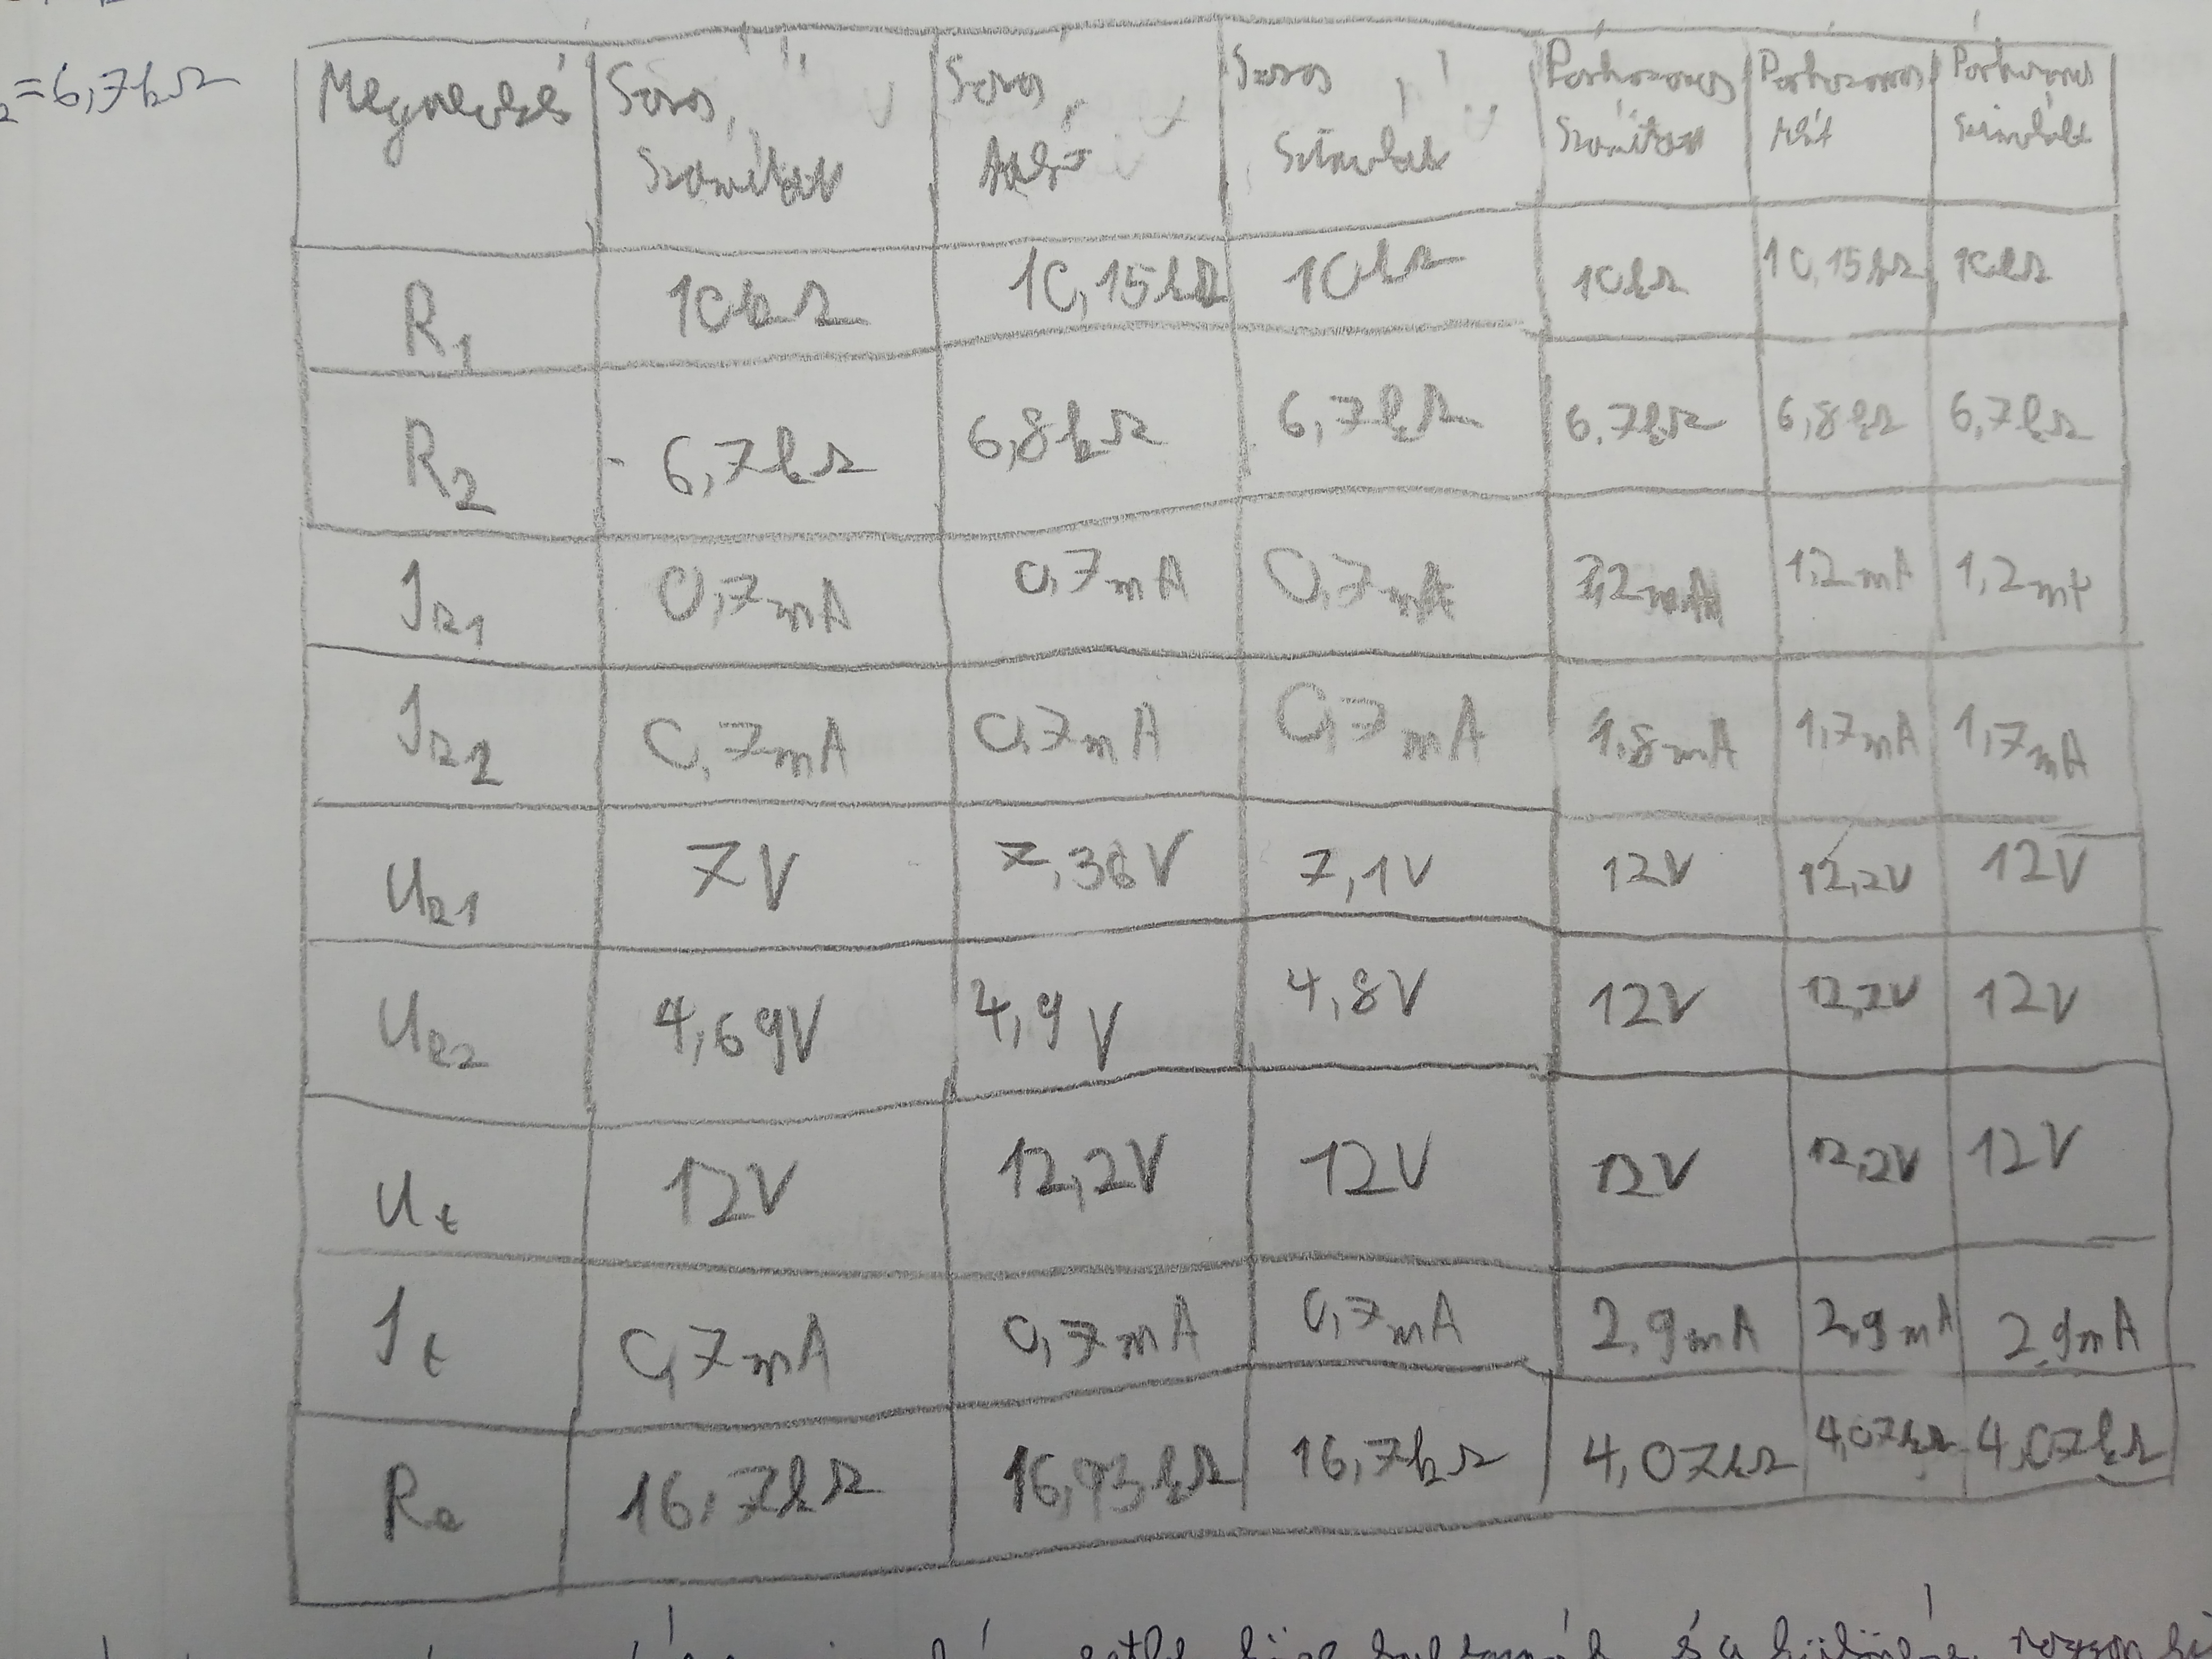 ₂=6,7kΩ
Megnevezés Soros Számított Soros Mért Soros Szimulált Párhuzamos Számított Párhuzamos Mért Párhuzamos Szimulált
R₁ 10kΩ 10,15kΩ 10kΩ 10kΩ 10,15kΩ 10kΩ
R₂ 6,7kΩ 6,8kΩ 6,7kΩ 6,7kΩ 6,8kΩ 6,7kΩ
I_R1 0,7mA 0,7mA 0,7mA 1,2mA 1,2mA 1,2mA
I_R2 0,7mA 0,7mA 0,7mA 1,8mA 1,7mA 1,7mA
U_R1 7V 7,36V 7,1V 12V 12,2V 12V
U_R2 4,69V 4,9V 4,8V 12V 12,2V 12V
U_t 12V 12,2V 12V 12V 12,2V 12V
I_t 0,7mA 0,7mA 0,7mA 2,9mA 2,9mA 2,9mA
R_e 16,7kΩ 16,93kΩ 16,7kΩ 4,07kΩ 4,07kΩ 4,07kΩ